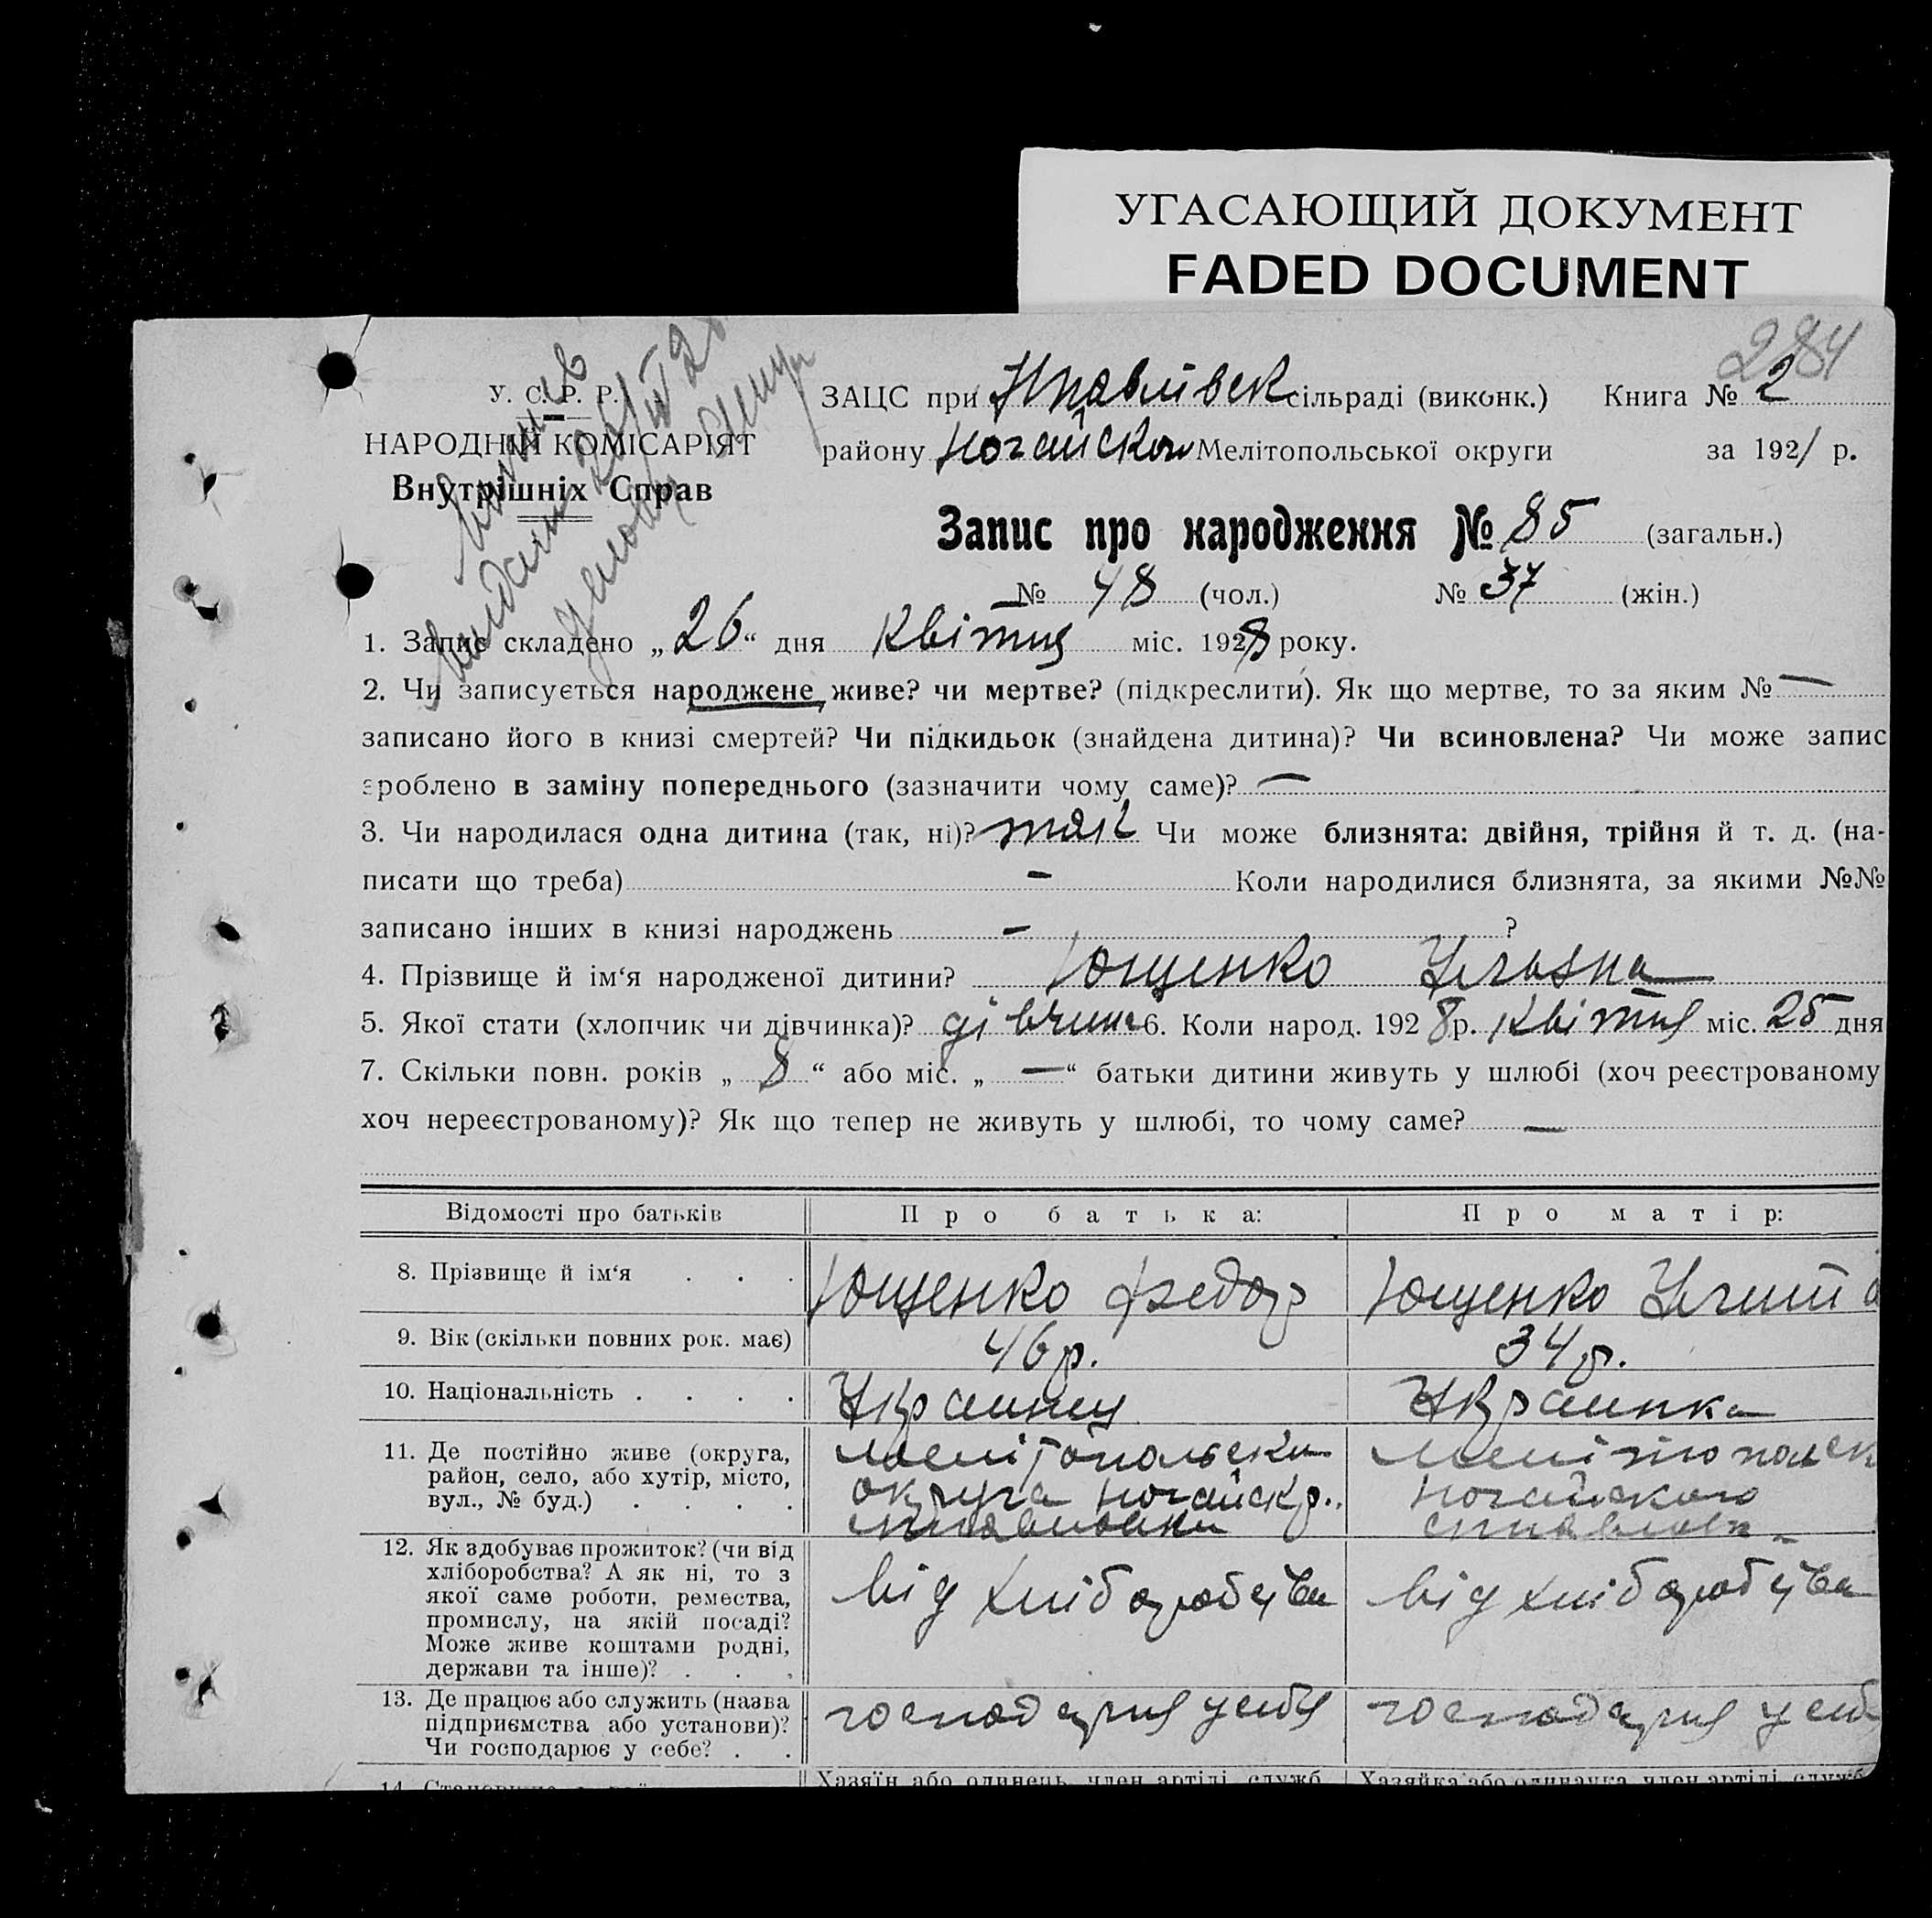 УГАСАЮЩИЙ ДОКУМЕНТ
FADED DOCUMENT
284
У. С. Р. Р.
НАРОДНІЙ КОМІСАРІЯТ
Внутрішніх Справ
ЗАЦС при сільраді (виконк.) Книга № 2
району Ногайском Мелітопольської округи за 192/ р.
Запис про народження № 85 (загальн.)
№ 48 (чол.) № 37 (жін.)
1. Запис складено „26“ дня Квітня міс. 1928 року.
2. Чи записується народжене живе? чи мертве? (підкреслити). Як що мертве, то за яким № —
записано його в книзі смертей? Чи підкидьок (знайдена дитина)? Чи всиновлена? Чи може запис
зроблено в заміну попереднього (зазначити чому саме)? —
3. Чи народилася одна дитина (так, ні)? так Чи може близнята: двійня, трійня й т. д. (на-
писати що треба) — Коли народилися близнята, за якими №№
записано інших в книзі народжень — ?
4. Прізвище й ім‘я народженої дитини? Ющенко
5. Якої стати (хлопчик чи дівчинка)? дівчина 6. Коли народ. 1928 р. Квітня міс. 25 дня
7. Скільки повн. років „8“ або міс. „—“ батьки дитини живуть у шлюбі (хоч реєстрованому
хоч нереєстрованому)? Як що тепер не живуть у шлюбі, то чому саме? —
Відомості про батьків Про батька: Про матір:
8. Прізвище й ім‘я . . . Ющенко Федор Ющенко
9. Вік (скільки повних рок. має) 46 р. 34 р.
10. Національність . . . . Украинец Украинка
11. Де постійно живе (округа, район, село, або хутір, місто, вул., № буд.) . . . .
Мелітопольска
округа Ногайск р.
Мелітопольск
Ногайского
12. Як здобуває прожиток? (чи від хліборобства? А як ні, то з якої саме роботи, ремества, промислу, на якій посаді? Може живе коштами родні, держави та інше)? . . .
від хліборобства
від хліборобства
13. Де працює або служить (назва підприємства або установи)? Чи господарює у себе? . .
господарює у себя
господарює у себ
Хазяїн або одинець, член артілі, служб. Хазяйка або одиначка, член артілі, служб